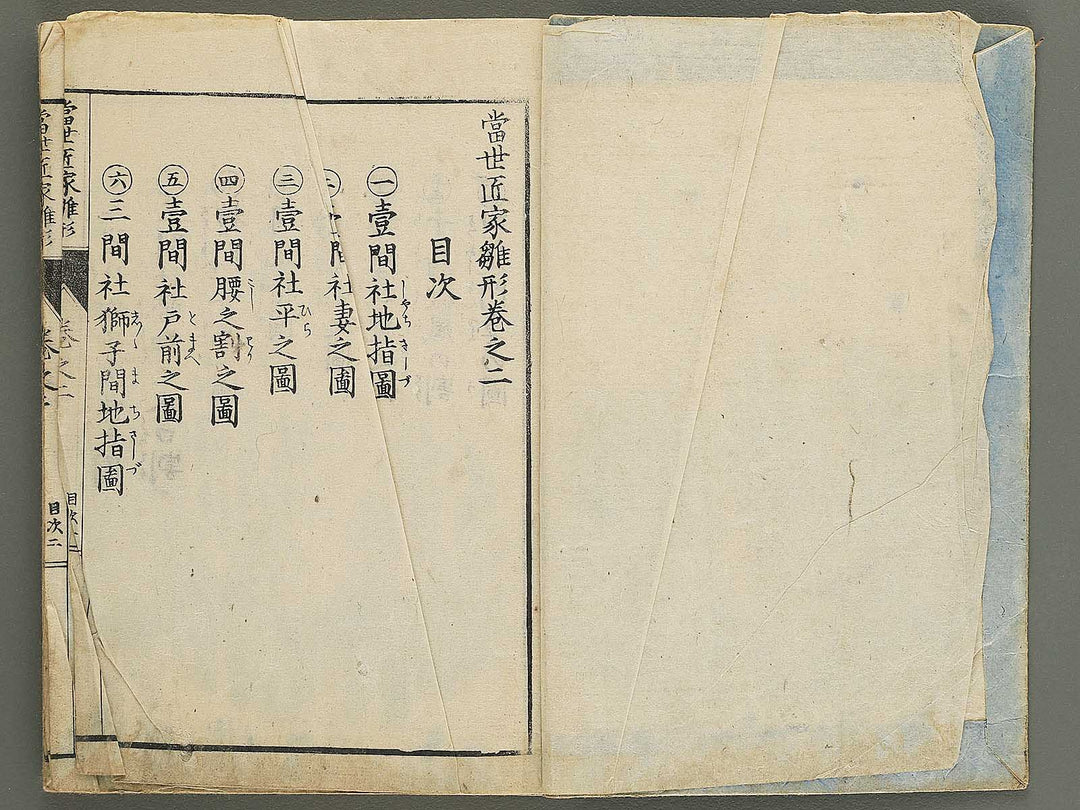 當世匠家雛形卷之二
目次
一 壹間社地指圖
二 壹間社妻之圖
三 壹間社平之圖
四 壹間腰之割之圖
五 壹間社戸前之圖
六 三間社獅子間地指圖
當世匠家雛形
卷之二
目次二
當世匠家雛形
卷之二
目次二